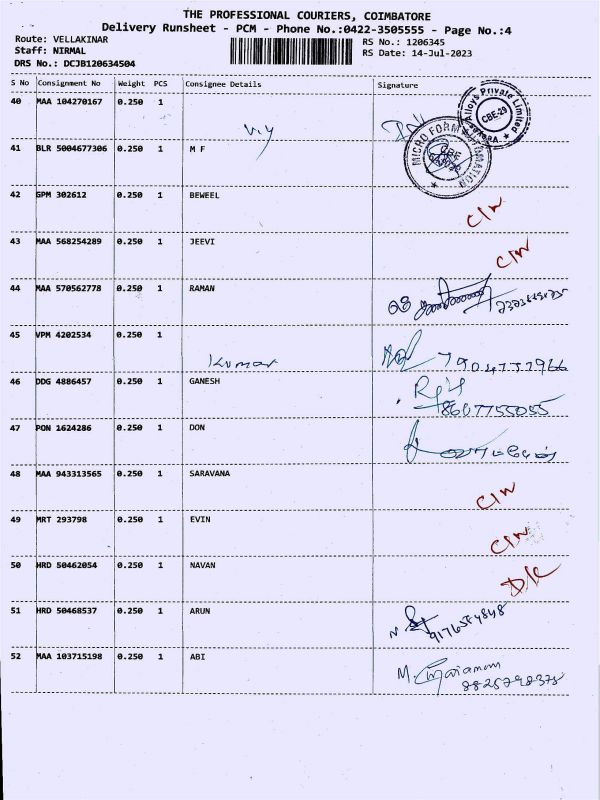 THE PROFESSIONAL COURIERS, COIMBATORE
Delivery Runsheet - PCM - Phone No.:0422-3505555 - Page No.:4
Route: VELLAKINAR
Staff: NIRMAL
DRS No.: DCJB120634504
RS No.: 1206345
RS Date: 14-Jul-2023
S No Consignment No Weight PCS Consignee Details Signature
40 MAA 104270167 0.250 1 Alloys Private Limited CBE-29
41 BLR 5004677306 0.250 1 M F MICRO FORM CBE
42 GPM 302612 0.250 1 BEWEEL C/N
43 MAA 568254289 0.250 1 JEEVI C/N
44 MAA 570562778 0.250 1 RAMAN
45 VPM 4202534 0.250 1 Kumar
46 DDG 4886457 0.250 1 GANESH 8607755055
47 PON 1624286 0.250 1 DON
48 MAA 943313565 0.250 1 SARAVANA C/N
49 MRT 293798 0.250 1 EVIN C/N
50 HRD 50462054 0.250 1 NAVAN D/C
51 HRD 50468537 0.250 1 ARUN
52 MAA 103715198 0.250 1 ABI 8825798378